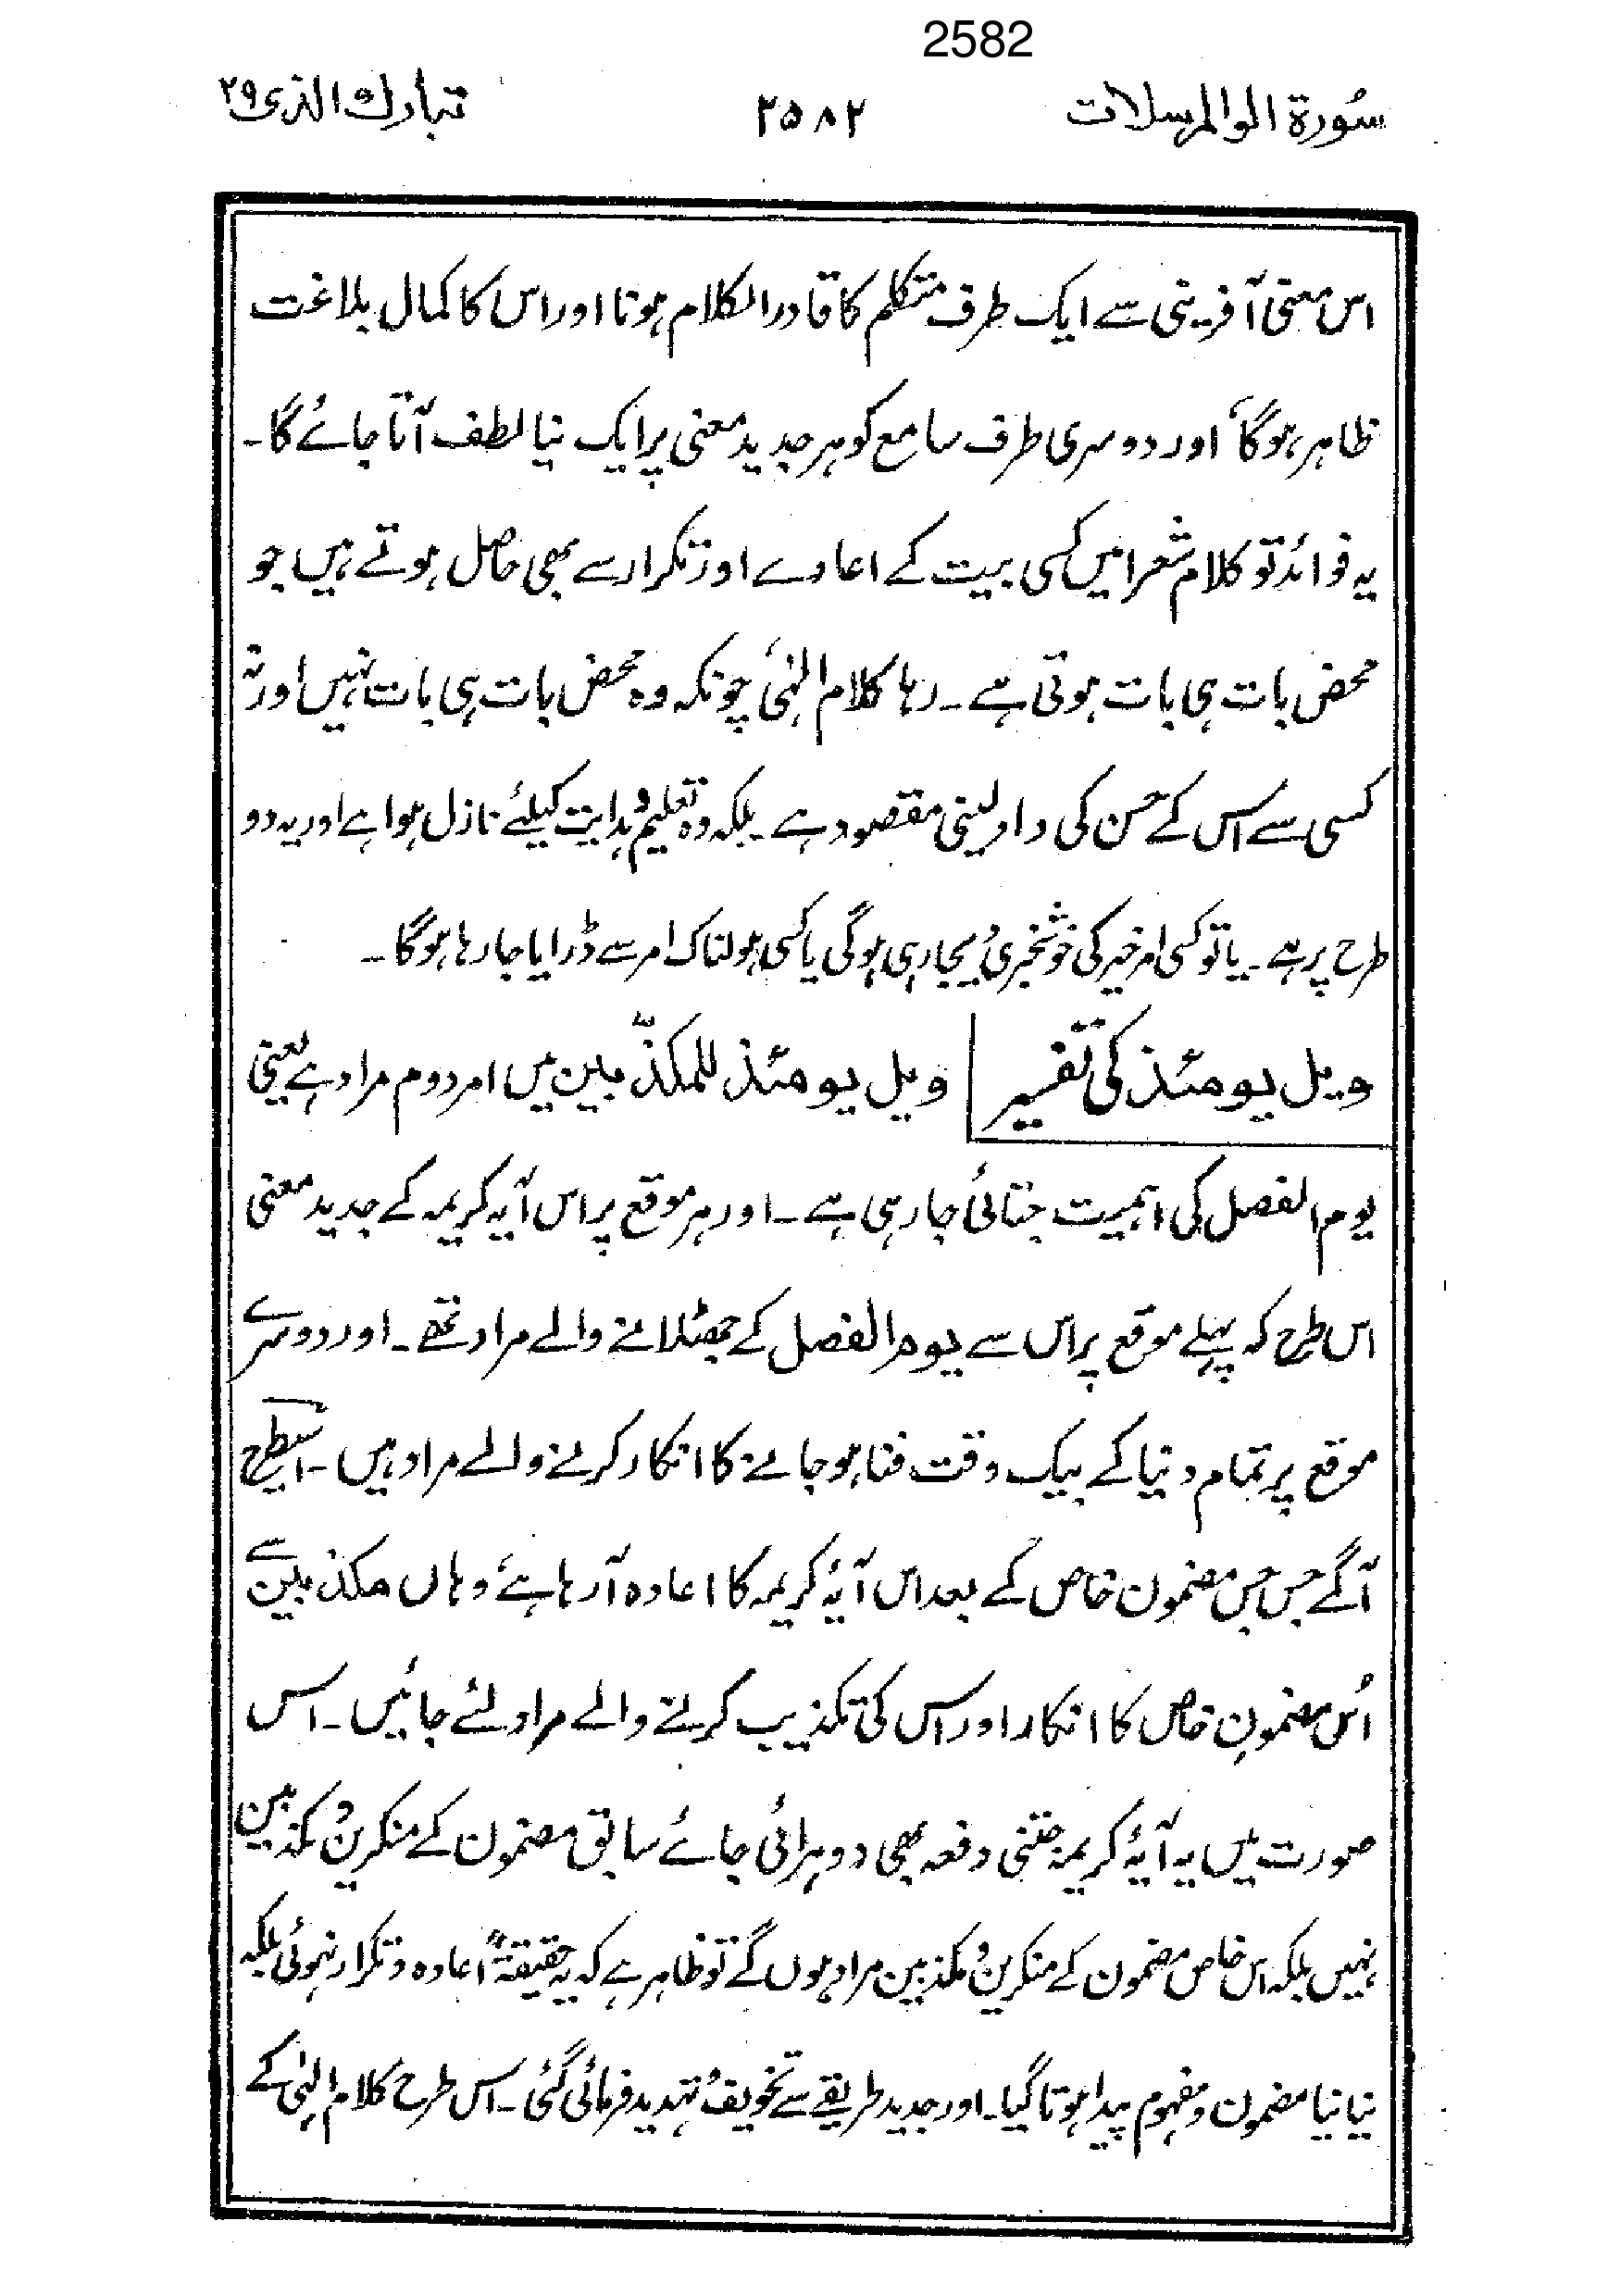 2582
سُورۃ الوالمرسلات ۲۵۸۲ تبارك الذی ۲۹
اس معنی آفرینی سے ایک طرف متکلم کا قادر الکلام ہونا اور اس کا کمال بلاغت
ظاہر ہوگا، اور دوسری طرف سامع کو ہر جدید معنی پر ایک نیا لطف آتا جائے گا۔
یہ فوائد تو کلام شعرا میں کسی بیت کے اعادے اور تکرار سے بھی حاصل ہوتے ہیں جو
محض بات ہی بات ہوتی ہے۔ رہا کلام الٰہی، چونکہ وہ محض بات ہی بات نہیں اور نہ
کسی سے اس کے حسن کی داد لینی مقصود ہے۔ بلکہ وہ تعلیم و ہدایت کیلئے نازل ہوا ہے اور یہ دو
طرح پر ہے۔ یا تو کسی امر خیر کی خوشخبری دیجارہی ہوگی یا کسی ہولناک امر سے ڈرایا جا رہا ہوگا۔
ویل یومئذ کی تفسیر ویل یومئذ للمکذّبین میں امر دوم مراد ہے یعنی
یوم الفصل کی اہمیت جتائی جا رہی ہے۔ اور ہر موقع پر اس آیہ کریمہ کے جدید معنی
اس طرح کہ پہلے موقع پر اس سے یوم الفصل کے جھٹلانے والے مراد تھے۔ اور دوسرے
موقع پر تمام دنیا کے بیک وقت فنا ہو جانے کا انکار کرنے والے مراد ہیں۔ اسیطرح
آگے جس جس مضمون خاص کے بعد اس آیۂ کریمہ کا اعادہ آ رہا ہے، وہاں مکذبین سے
اُس مضمونِ خاص کا انکار اور اس کی تکذیب کرنے والے مراد لئے جائیں۔ اس
صورت میں یہ آیۂ کریمہ جتنی دفعہ بھی دوہرائی جائے سابق مضمون کے منکرین و مکذبین
نہیں بلکہ اس خاص مضمون کے منکرین و مکذبین مراد ہوں گے تو ظاہر ہے کہ یہ حقیقۃً اعادہ و تکرار نہوئی بلکہ
نیا نیا مضمون و مفہوم پیدا ہوتا گیا۔ اور جدید طریقے سے تخویف و تہدید فرمائی گئی۔ اس طرح کلام الٰہی کے